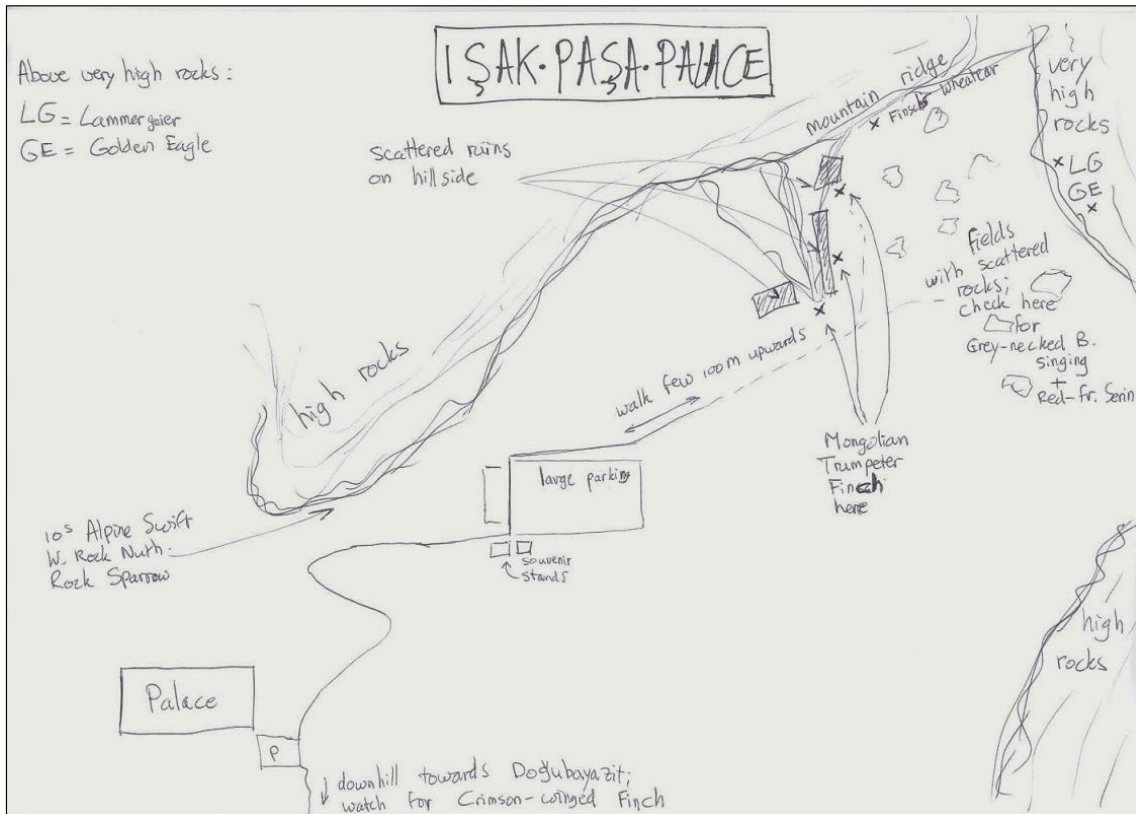 IŞAK·PAŞA·PALACE
Above very high rocks:
LG = Lammergaier
GE = Golden Eagle
scattered ruins
on hillside
mountain ridge
x Finsch's Wheatear
very
high
rocks
x LG
GE
x
fields
with scattered
rocks;
check here
for
Grey-necked B.
singing
+
Red-fr. Serin
high rocks
walk few 100m upwards
Mongolian
Trumpeter
Finch
here
large parking
souvenir
stands
10s Alpine Swift
W. Rock Nuth.
Rock Sparrow
high
rocks
Palace
P
downhill towards Doğubayazit;
watch for Crimson-winged Finch